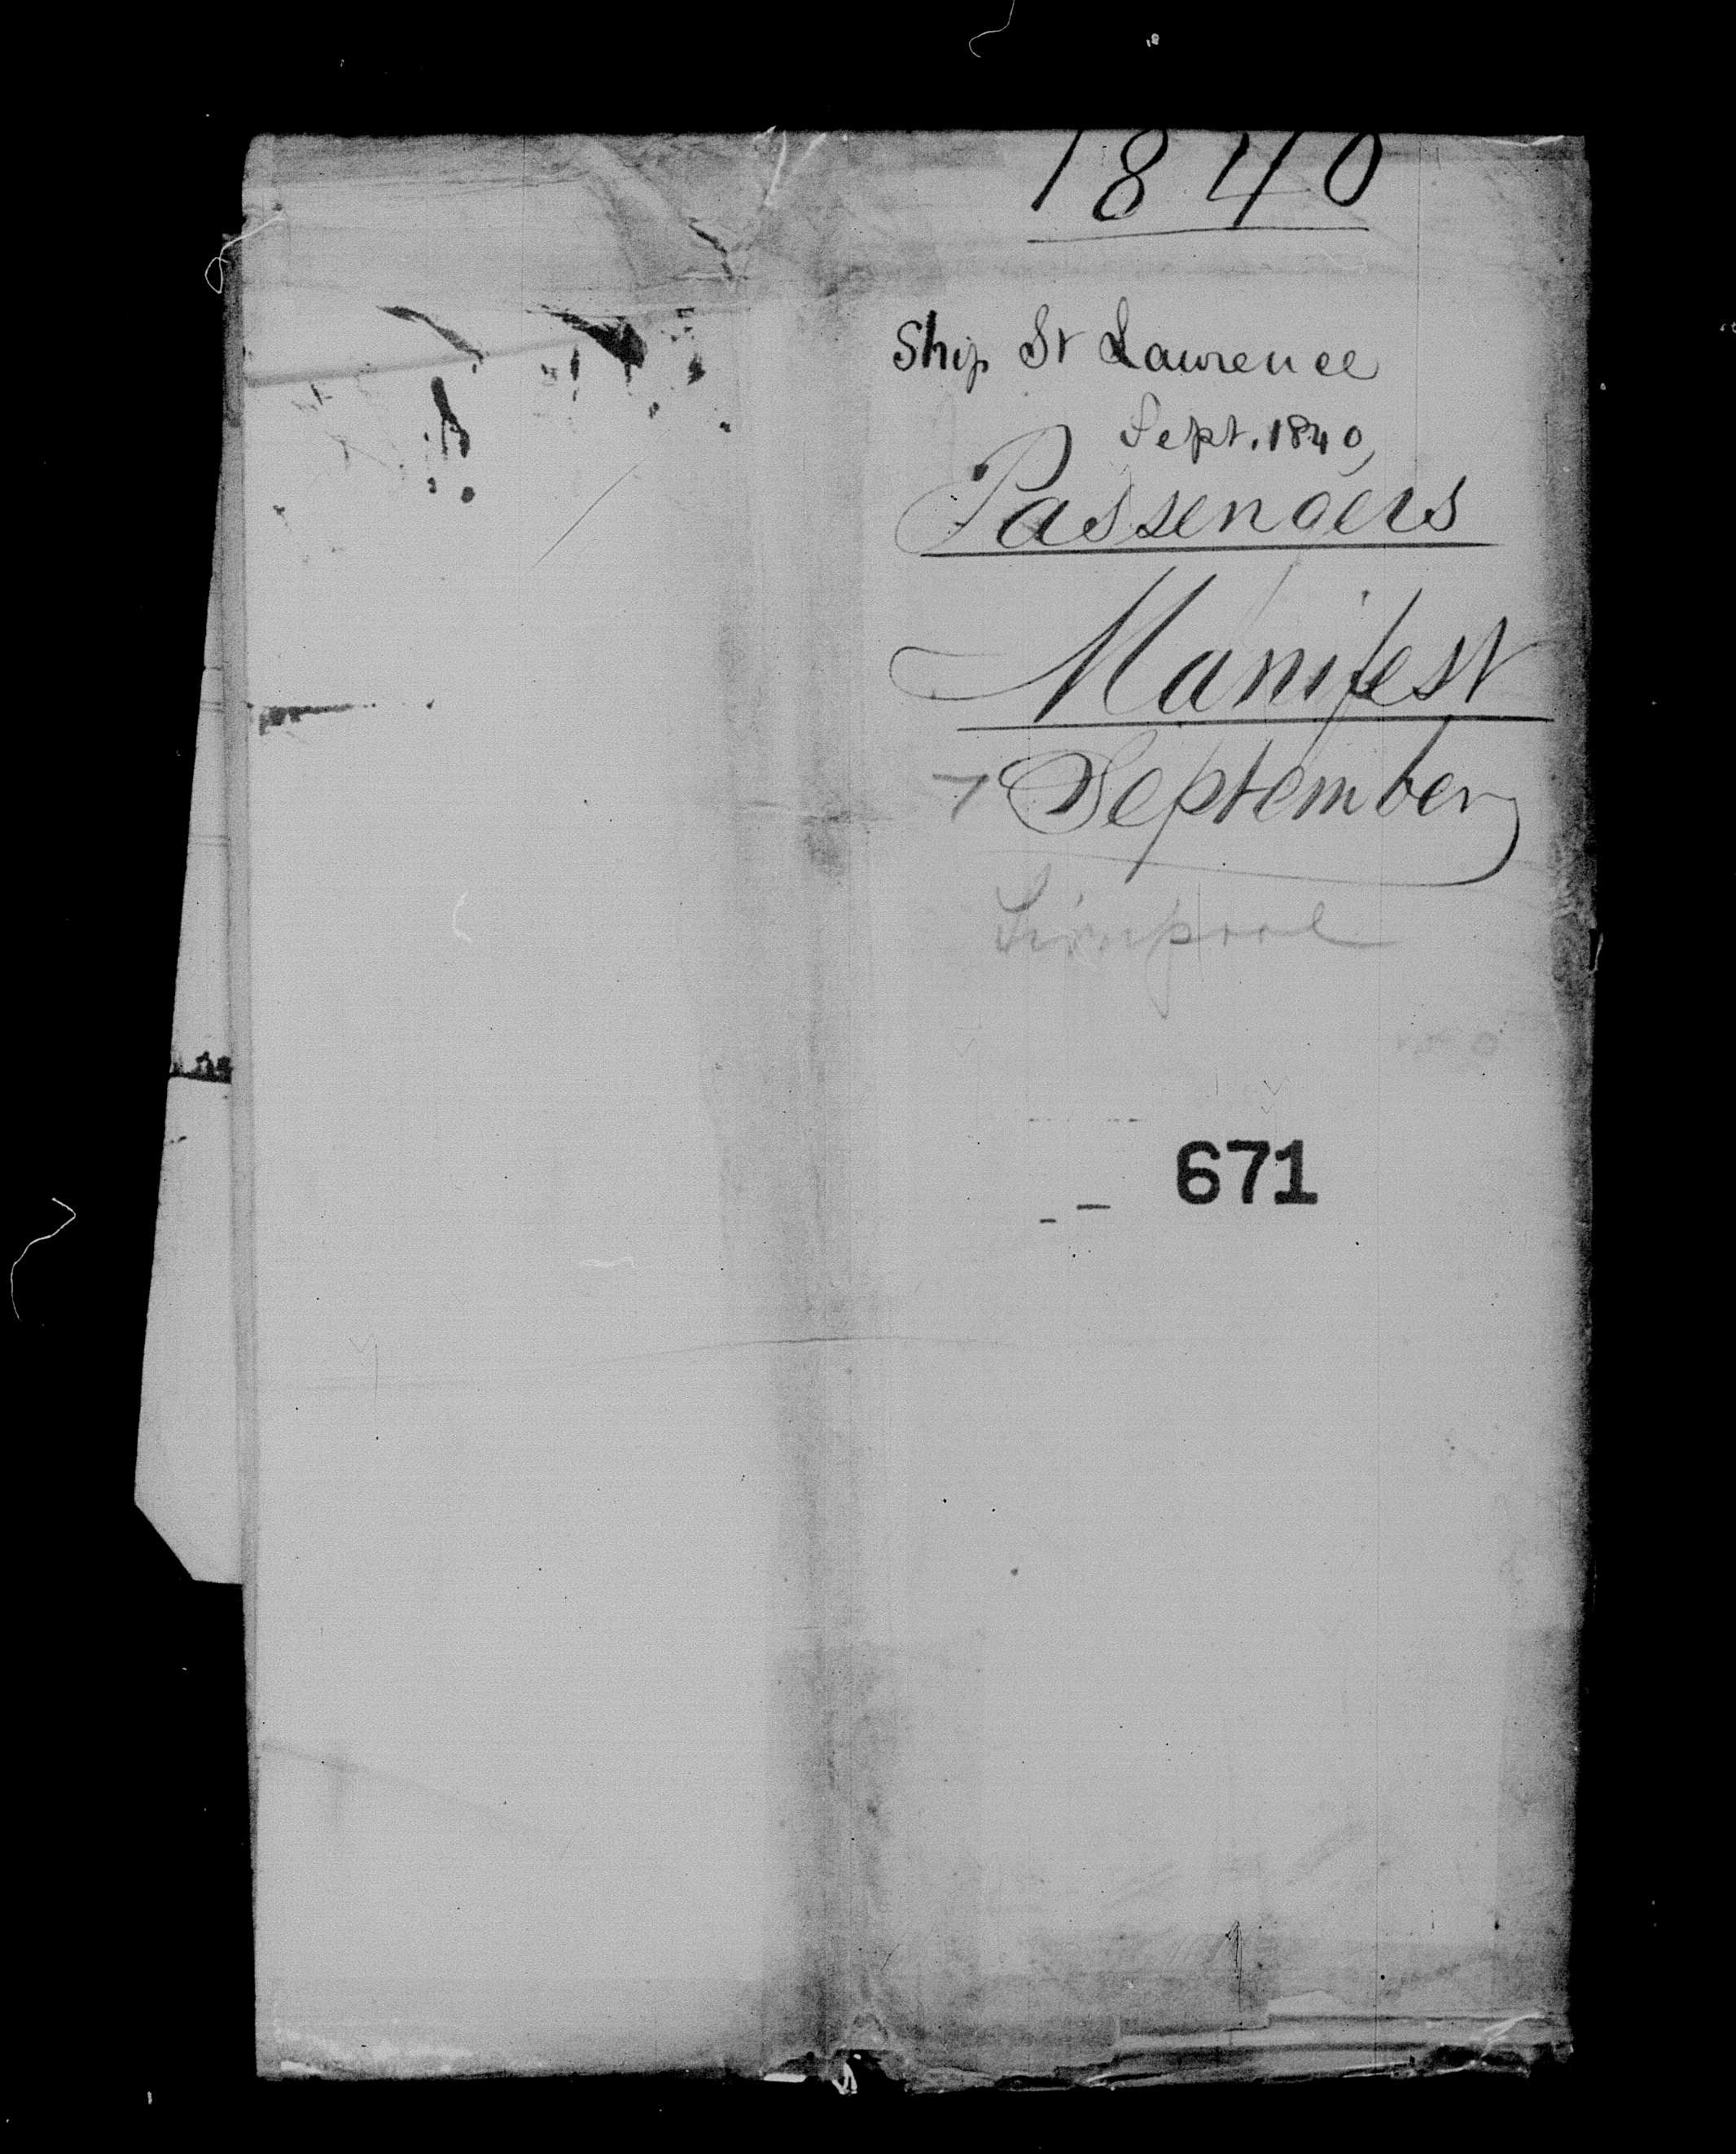 1840
Ship St Lawrence
Sept. 1840,
Passengers
Manifest
7 September
Liverpool
671